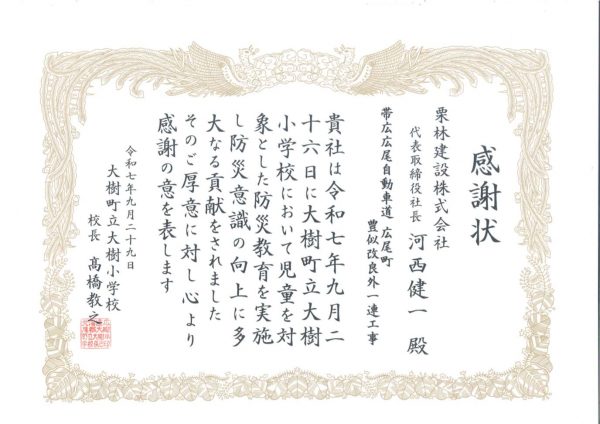 感謝状
栗林建設株式会社
代表取締役社長 河西健一 殿
帯広広尾自動車道 広尾町
豊似改良外一連工事
貴社は令和七年九月二
十六日に大樹町立大樹
小学校において児童を対
象とした防災教育を実施
し防災意識の向上に多
大なる貢献をされました
そのご厚意に対し心より
感謝の意を表します
令和七年九月二十九日
大樹町立大樹小学校
校長 髙橋教之